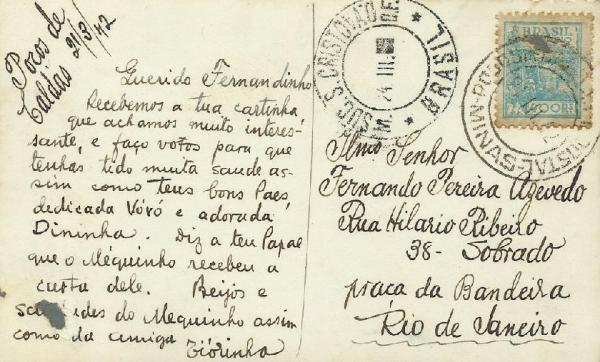 Poços de
Caldas 21/3/42
Querido Fernandinho
Recebemos a tua cartinha
que achamos muito interes-
sante, e faço votos para que
tenhas tido muita saude as-
sim como teus bons Paes,
dedicada Vóvó e adorada
Dininha. Diz a teu Papae
que o Mèquinho recebeu a
carta dele. Beijos e
saudades do Mequinho assim
como da amiga
Ilmo Senhor
Fernando Pereira Azevedo
Rua Hilario Ribeiro
38- Sobrado
praca da Bandeira
Rio de Janeiro
S. CRISTOVÃO
24 III
BRASIL
BRASIL
CORREIO
POSTAL-SAVNIM